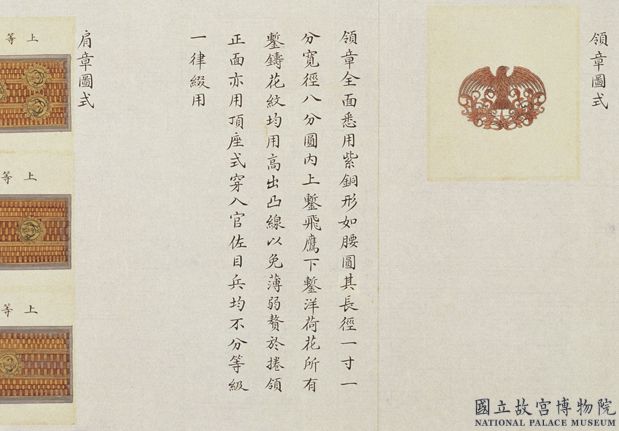 領章圖式
領章全面悉用紫銅形如腰圓其長徑一寸一
分寬徑八分圓內上鏨飛鷹下鏨洋荷花所有
鏨鑄花紋均用高出凸線以免薄弱贅於捲領
正面亦用頂座式穿入官佐目兵均不分等級
一律綴用
肩章圖式
上等
上等
上等
國立故宮博物院
NATIONAL PALACE MUSEUM